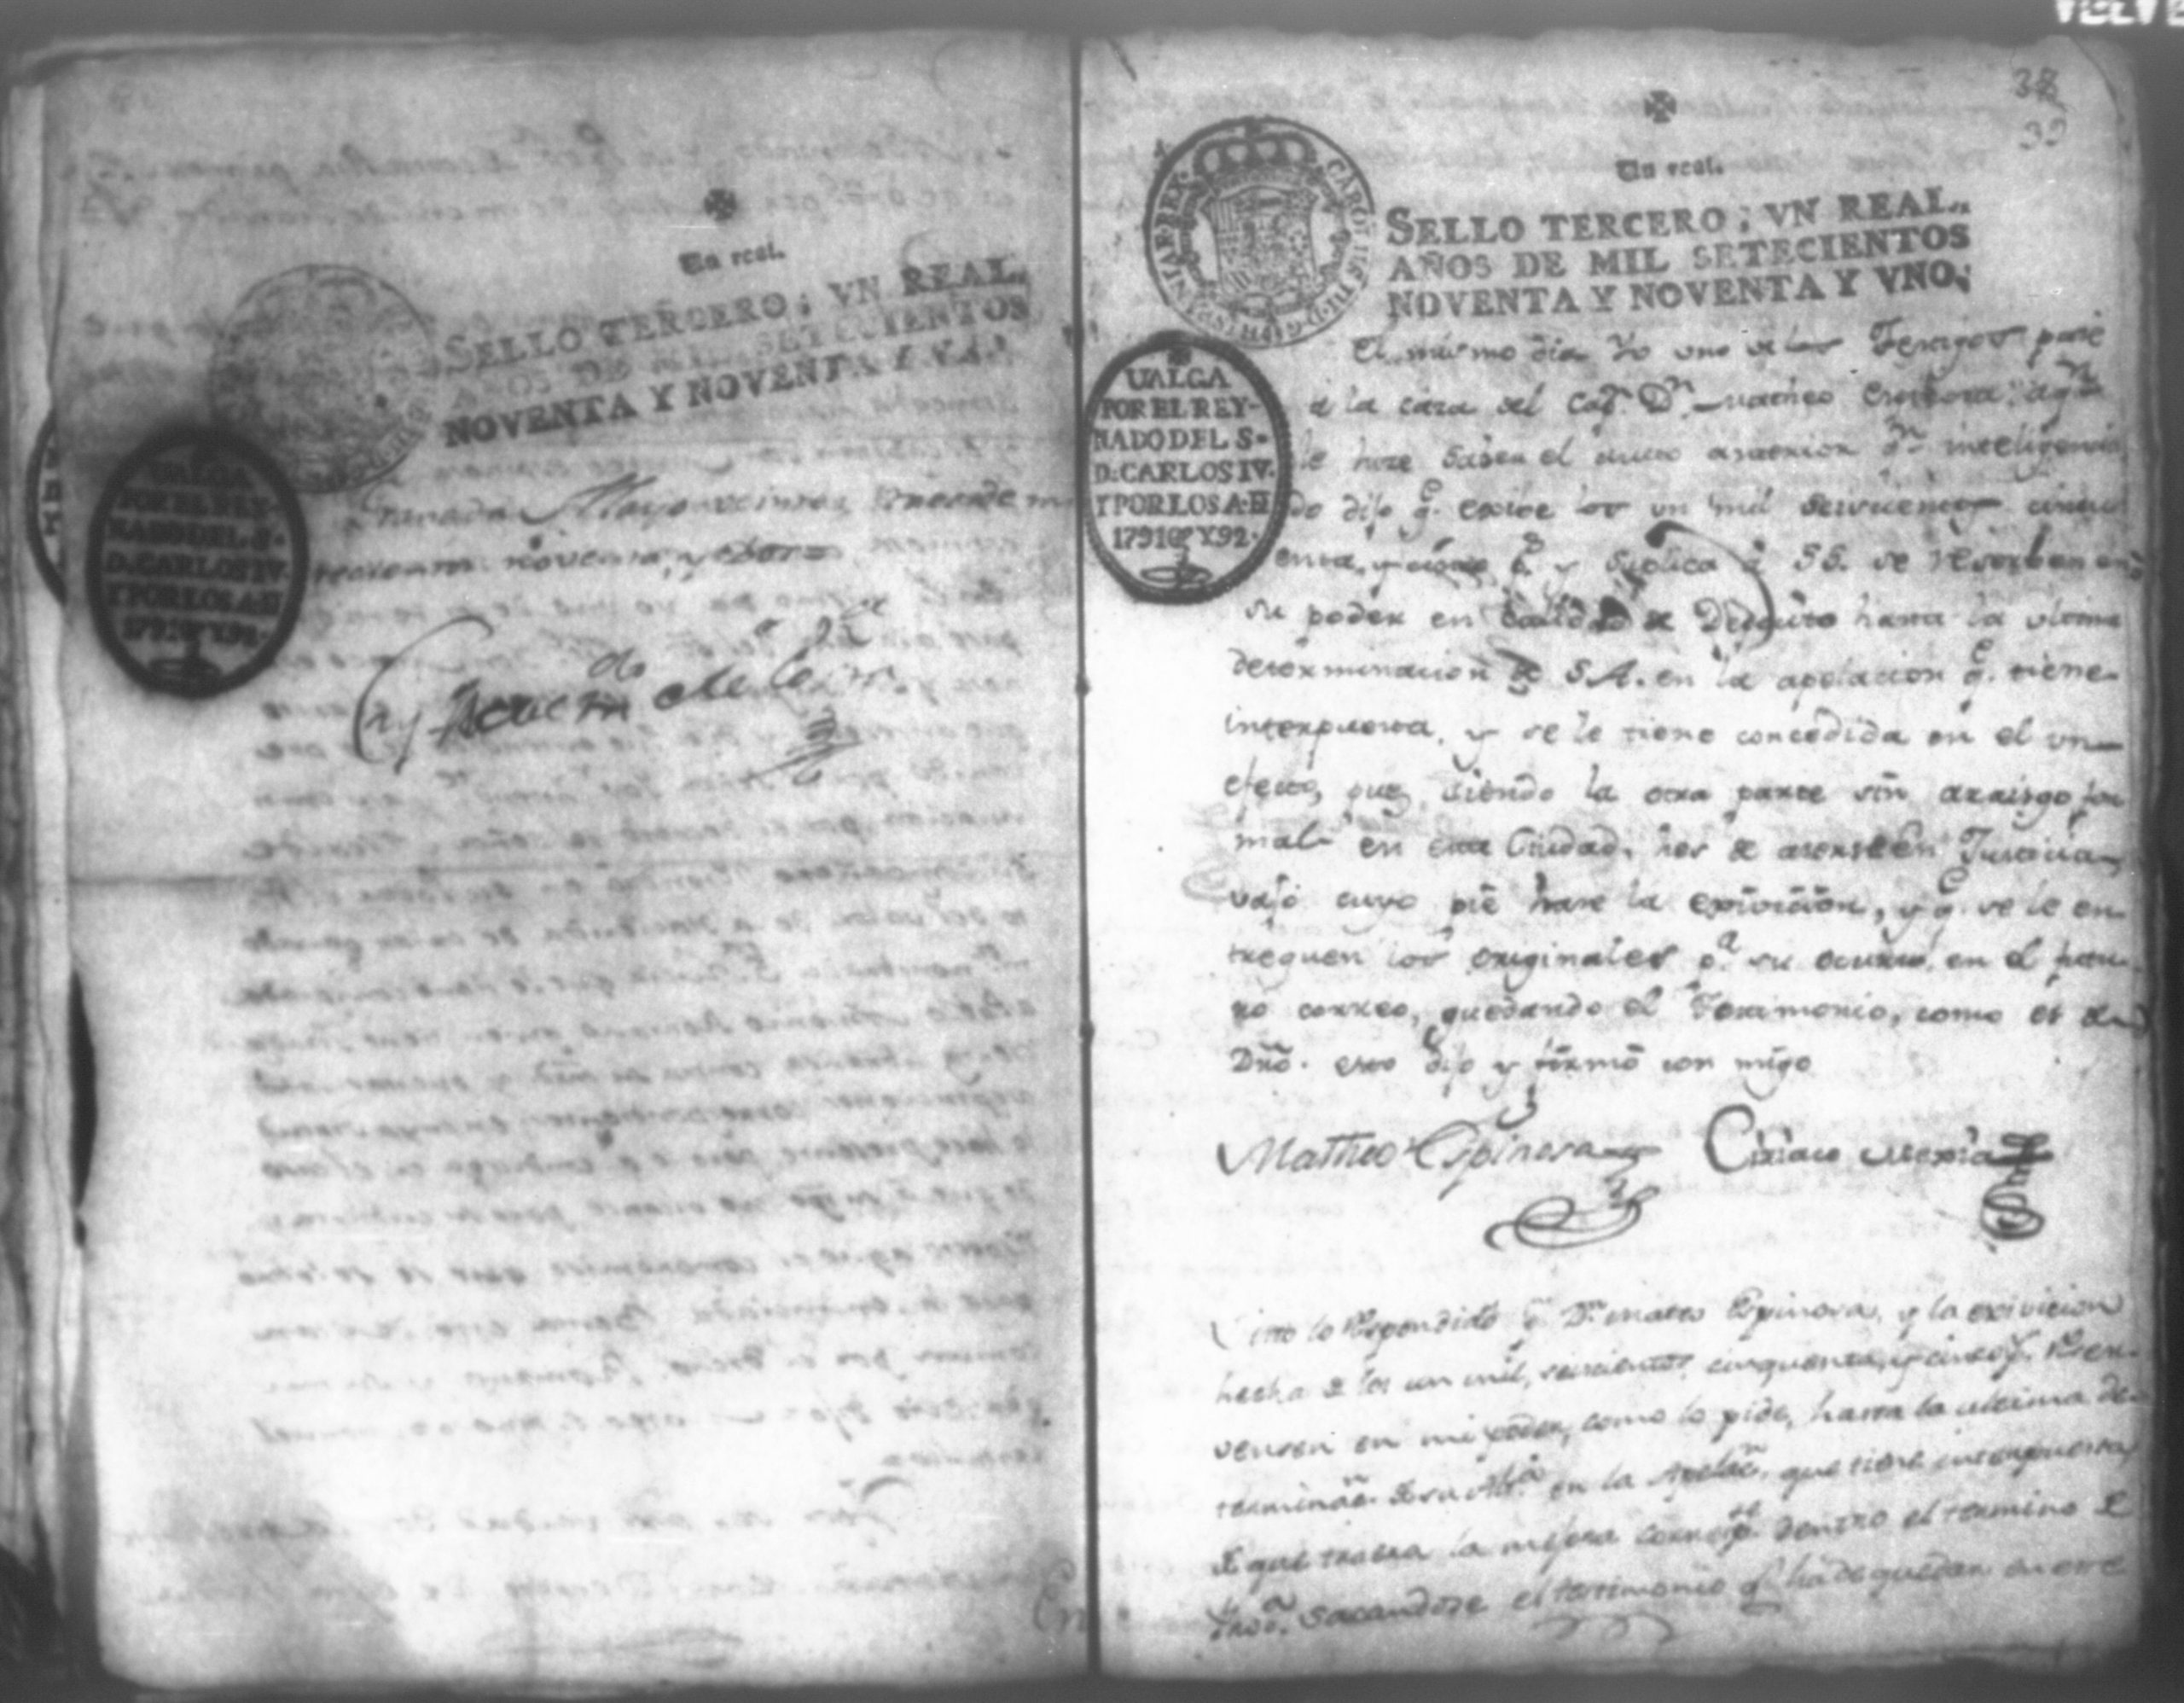 Un real.
SELLO TERCERO; VN REAL,
SETECIENTOS
NOVENTA Y NOVENTA Y VNO.
VALGA
POR EL REY-
NADO DEL S.
D. CARLOS IV.
Y POR LOS A. D
1791 Y 92.
Granada Mayo veinte
noventa, y dos
38
39
Un real.
CAROLUS IIII D.G. HISPANIAR. REX
SELLO TERCERO; VN REAL..
AÑOS DE MIL SETECIENTOS
NOVENTA Y NOVENTA Y VNO;
UALGA
POR EL REY-
NADO DEL S.
D. CARLOS IV.
Y POR LOS A. D
1791 Y 92.
El mismo dia Yo uno de los Testigos pasé
á la casa del Cap.n D.n Matheo Espinosa, á q.n
le hize saver el auto anterior q.n inteligencia
do dijo q.e exive los un mil seiscientos cincu
enta, y cinco p.s y suplica á SS. se reserben en
su poder en calidad de Deposito hasta la ultima
determinacion de S.A. en la apelacion q.e tiene
interpuesta, y se le tiene concedida en el un
efecto, pues siendo la otra parte sin araigo for
mal en esta Ciudad, hes de
vajo cuyo pie hase la exivicion, y q.e se le en
treguen los originales p.a su ocurso en el futu
ro correo, quedando el Testimonio, como es de
Dro. esto dijo y firmó con migo
Matheo Espinosa Ciriaco Mexia
Visto lo Respondido p.r D.n Mateo Espinosa, y la exivicion
hecha de los un mil, seiscientos, cinquenta, y cinco p.s Reser
vensen en mi poder, como lo pide, hasta la ultima de
terminan. de su Alt.a en la Apelac.n que tiene interpuesta,
de que traera la mejora corresp.te dentro el termino de
Sacandose el testimonio q.e ha de quedar en este